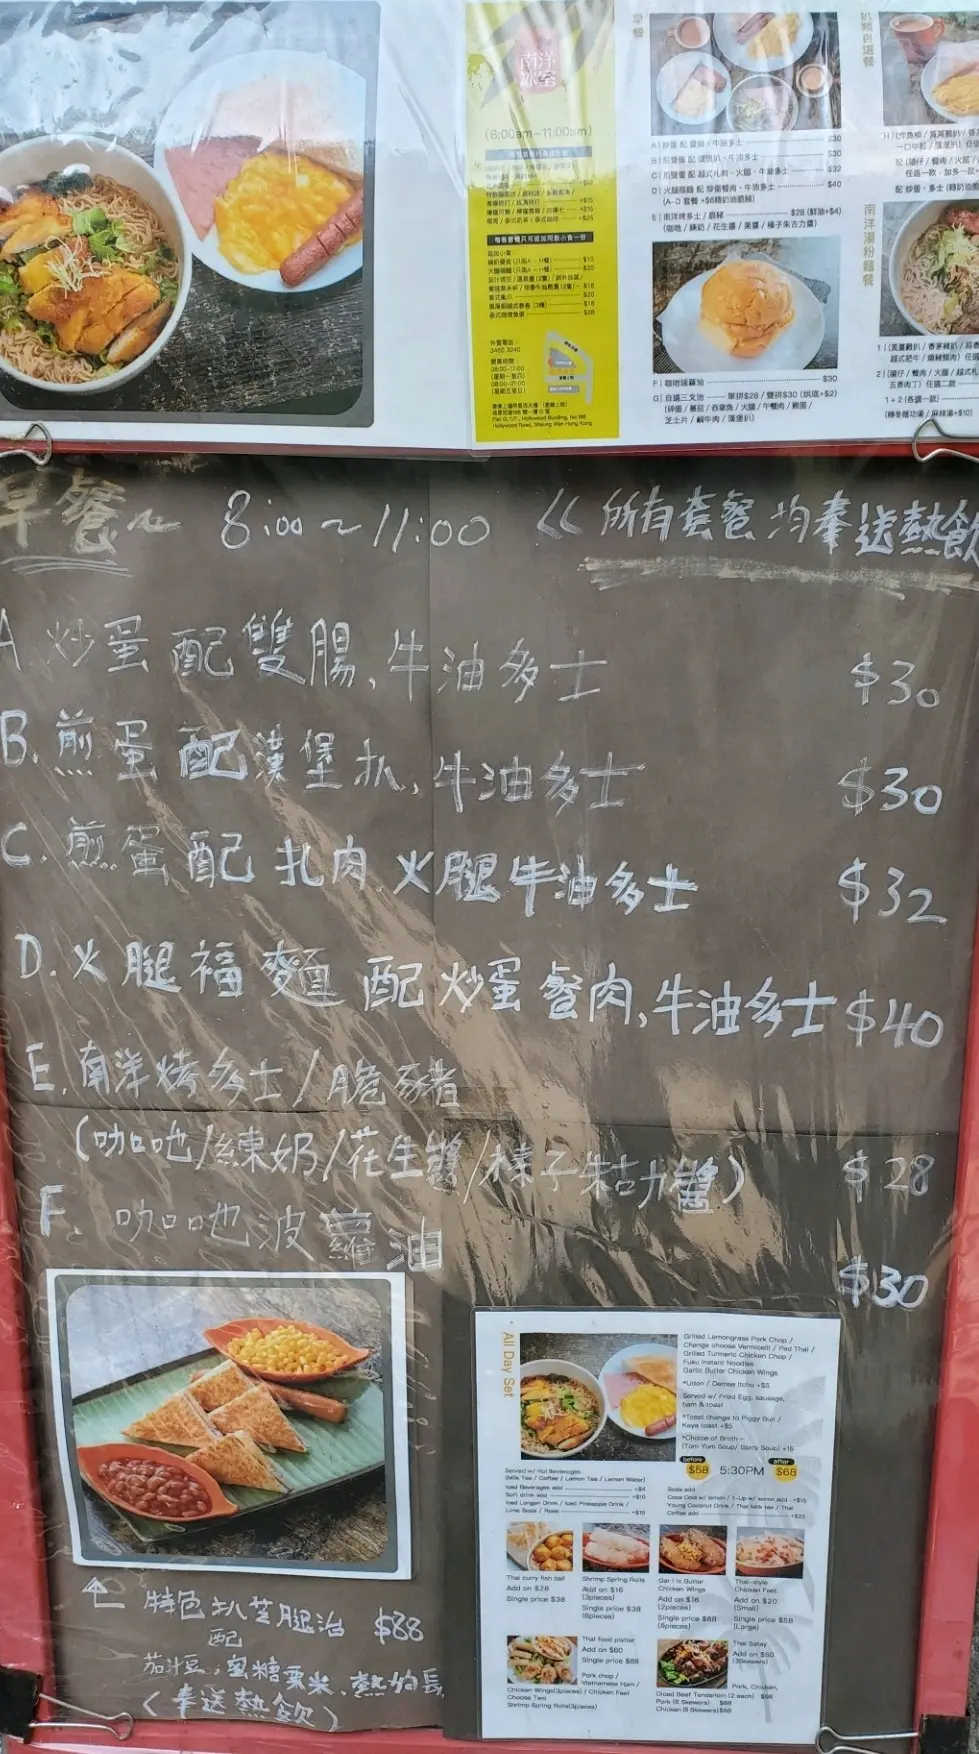 南洋
冰室
(8:00am-11:00am)
外賣電話:
3460 3240
營業時間:
08:00-17:00
(星期一至四)
08:00-21:00
Hollywood Road, Sheung Wan Hong Kong
早餐
A | 炒蛋 配 雙腸、牛油多士 $30
B | 煎雙蛋 配 漢堡扒、牛油多士 $30
C | 煎雙蛋 配 越式扎肉、火腿、牛油多士 $32
D | 火腿福麵 配 炒蛋餐肉、牛油多士 $40
(A-D 套餐 +$6轉奶油脆豬)
E | 南洋烤多士 / 脆豬 $28 (鮮油+$4)
(咖吔 / 練奶 / 花生醬 / 果醬 / 榛子朱古力醬)
F | 咖吔菠蘿油 $30
G | 自選三文治 單拼$28 / 雙拼$30 (烘底+$2)
(碎蛋 / 蕃茄 / 吞拿魚 / 火腿 / 午餐肉 / 腸蛋 /
芝士片 / 鹹牛肉 / 漢堡扒)
扒類自選餐
南洋湯粉麵餐
1+2 (各選一款)
早餐 8:00~11:00 << 所有套餐均奉送熱飲
A. 炒蛋配雙腸,牛油多士 $30
B. 煎蛋配漢堡扒,牛油多士 $30
C. 煎蛋配扎肉火腿牛油多士 $32
D. 火腿福麵配炒蛋餐肉,牛油多士 $40
E. 南洋烤多士/脆豬
(咖吔/練奶/花生醬/榛子朱古力醬) $28
F. 咖吔波蘿油 $30
特色扒芝腿治 $88
配
茄汁豆,蜜糖粟米,熱灼長
(奉送熱飲)
All Day Set
Grilled Lemongrass Pork Chop /
Change choose Vermicelli / Pad Thai /
Grilled Turmeric Chicken Chop /
Fuku Instant Noodles
Garlic Butter Chicken Wings
Served w/ Fried Egg, sausage,
ham & toast
*Toast change to Piggy Bun /
Kaya toast +$5
*Choice of Broth –
(Tom Yum Soup/ Spicy Soup) +15
before $58 5:30PM after $68
Served w/ Hot Beverages
(Milk Tea / Coffee / Lemon Tea / Lemon Water)
Iced Beverages add +$4
Soft drink add +$10
Iced Longan Drink / Iced Pineapple Drink /
Lime Soda / Rose +$15
Soda add
Coca Cola w/ lemon / 7-Up w/ lemon add +$15
Young Coconut Drink / Thai Milk tea / Thai
Coffee add +$25
Thai curry fish ball
Add on $28
Single price $38
Shrimp Spring Rolls
Add on $16
(3pieces)
Single price $38
(6pieces)
Garlic Butter
Chicken Wings
Add on $16
(2pieces)
Single price $68
(6pieces)
Thai-style
Chicken Feet
Add on $20
(Small)
Single price $58
(Large)
Thai food platter
Add on $60
Single price $88
Pork chop /
Vietnamese Ham /
Chicken Wings(3pieces) / Chicken Feet
Choose Two
Shrimp Spring Rolls(3pieces)
Thai Satay
Add on $50
(3Skewers)
Pork, Chicken,
Diced Beef Tenderloin (2 each) $98
Pork (6 Skewers) $88
Chicken (6 Skewers)$88